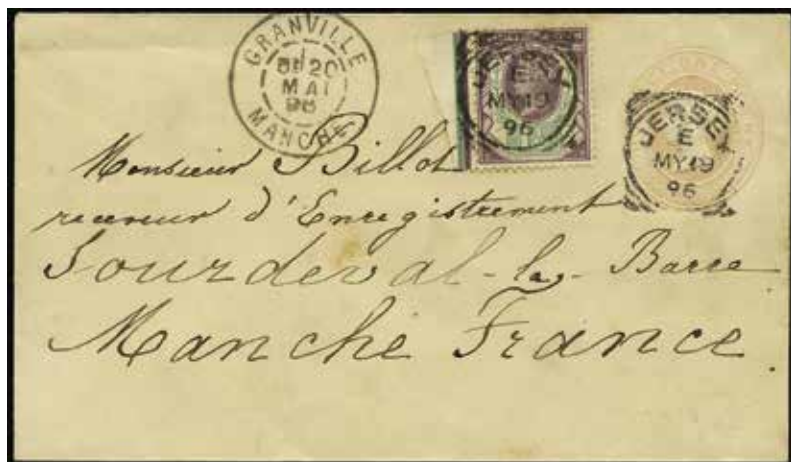 GRANVILLE
5E 20
MAI
96
MANCHE
JERSEY
E
MY 19
96
JERSEY
E
MY 19
96
Monsieur Billot
receveur d'Enregistrement
Sourdeval-la-Barre
Manche France.